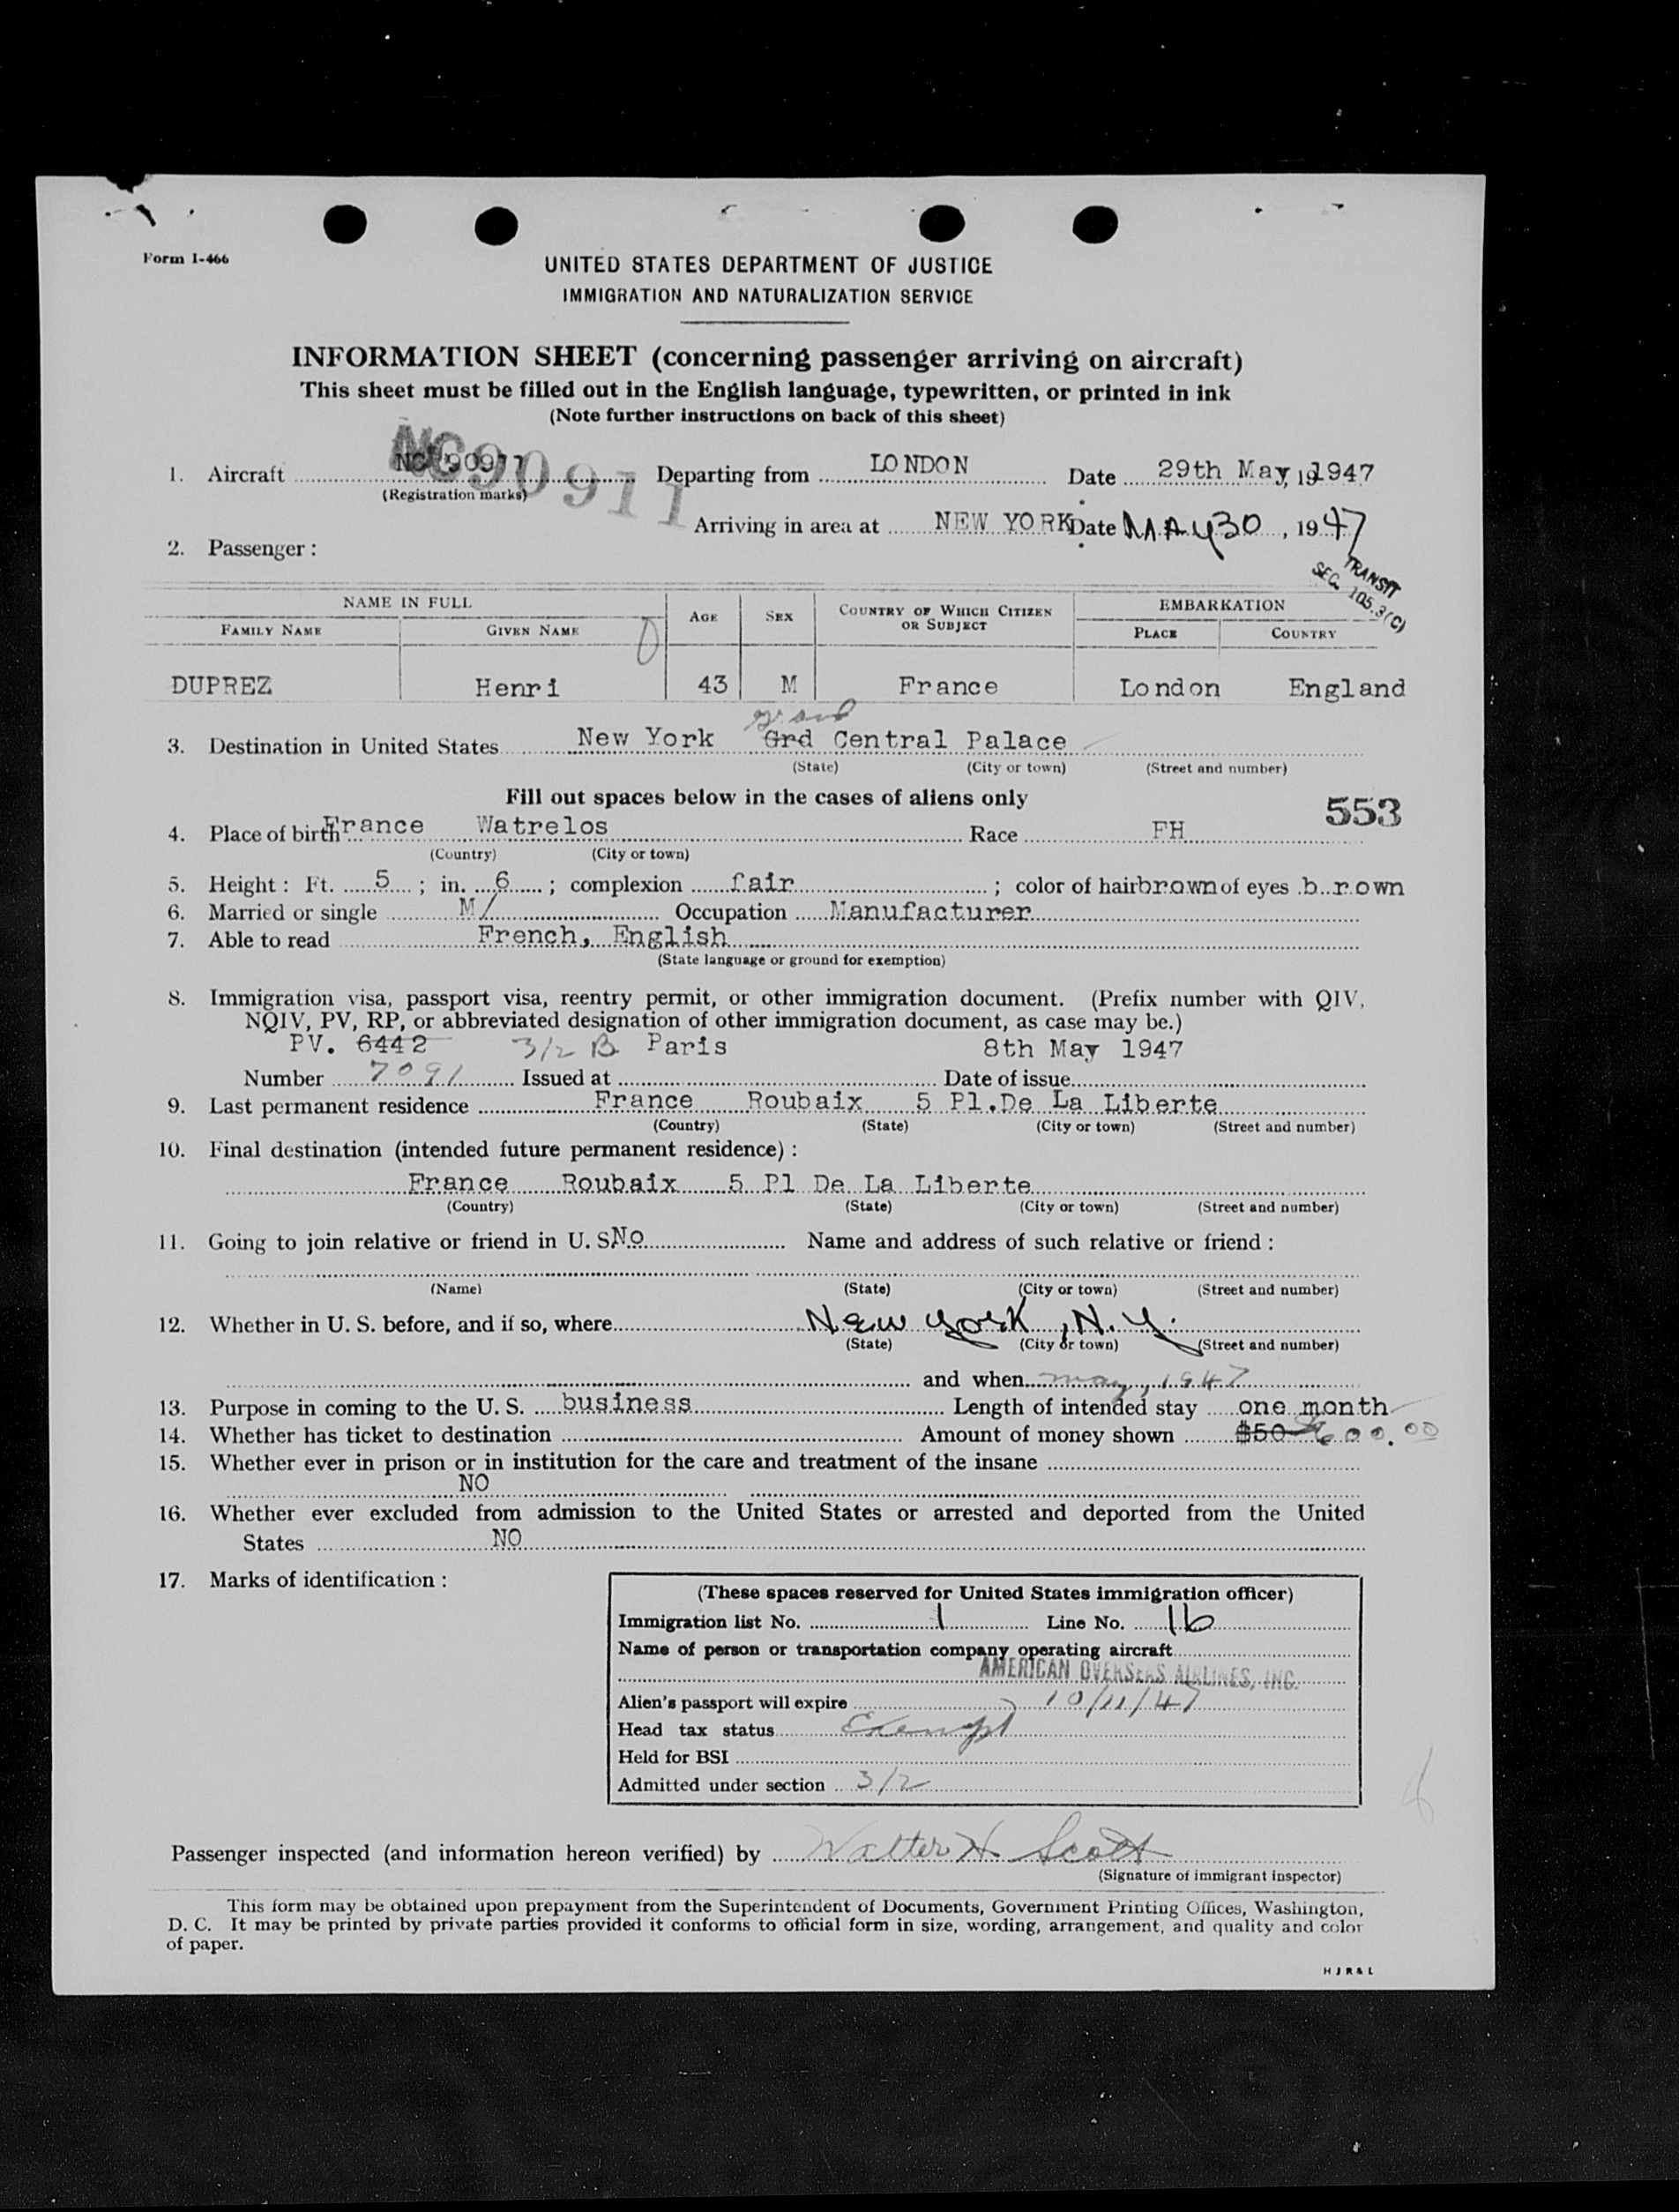 Form I-466
UNITED STATES DEPARTMENT OF JUSTICE
IMMIGRATION AND NATURALIZATION SERVICE
INFORMATION SHEET (concerning passenger arriving on aircraft)
This sheet must be filled out in the English language, typewritten, or printed in ink
(Note further instructions on back of this sheet)
NC90911
1. Aircraft NC 90911 Departing from LONDON Date 29th May, 19 1947
(Registration marks)
Arriving in area at NEW YORK Date MAY 30, 1947
2. Passenger:
TRANSIT
SEC. 105.3(C)
NAME IN FULL AGE SEX COUNTRY OF WHICH CITIZEN OR SUBJECT EMBARKATION
FAMILY NAME GIVEN NAME PLACE COUNTRY
DUPREZ Henri 43 M France London England
grand
3. Destination in United States New York Grd Central Palace
(State) (City or town) (Street and number)
Fill out spaces below in the cases of aliens only
553
4. Place of birth France Watrelos Race FH
(Country) (City or town)
5. Height: Ft. 5; in. 6; complexion fair; color of hair brown of eyes brown
6. Married or single M Occupation Manufacturer
7. Able to read French, English
(State language or ground for exemption)
8. Immigration visa, passport visa, reentry permit, or other immigration document. (Prefix number with QIV,
NQIV, PV, RP, or abbreviated designation of other immigration document, as case may be.)
PV. 6442 3/2 B Paris 8th May 1947
Number 7091 Issued at Date of issue
9. Last permanent residence France Roubaix 5 Pl.De La Liberte
(Country) (State) (City or town) (Street and number)
10. Final destination (intended future permanent residence):
France Roubaix 5 Pl De La Liberte
(Country) (State) (City or town) (Street and number)
11. Going to join relative or friend in U. S. No Name and address of such relative or friend:
(Name) (State) (City or town) (Street and number)
12. Whether in U. S. before, and if so, where New York, N.Y.
(State) (City or town) (Street and number)
and when may, 1947
13. Purpose in coming to the U. S. business Length of intended stay one month
14. Whether has ticket to destination Amount of money shown $50 600.00
15. Whether ever in prison or in institution for the care and treatment of the insane
NO
16. Whether ever excluded from admission to the United States or arrested and deported from the United
States NO
17. Marks of identification:
(These spaces reserved for United States immigration officer)
Immigration list No. 1 Line No. 16
Name of person or transportation company operating aircraft
AMERICAN OVERSEAS AIRLINES, INC.
Alien's passport will expire 10/11/47
Head tax status Exempt
Held for BSI
Admitted under section 3/2
Passenger inspected (and information hereon verified) by Walter H Scott
(Signature of immigrant inspector)
This form may be obtained upon prepayment from the Superintendent of Documents, Government Printing Offices, Washington,
D. C. It may be printed by private parties provided it conforms to official form in size, wording, arrangement, and quality and color
of paper.
H J R & L